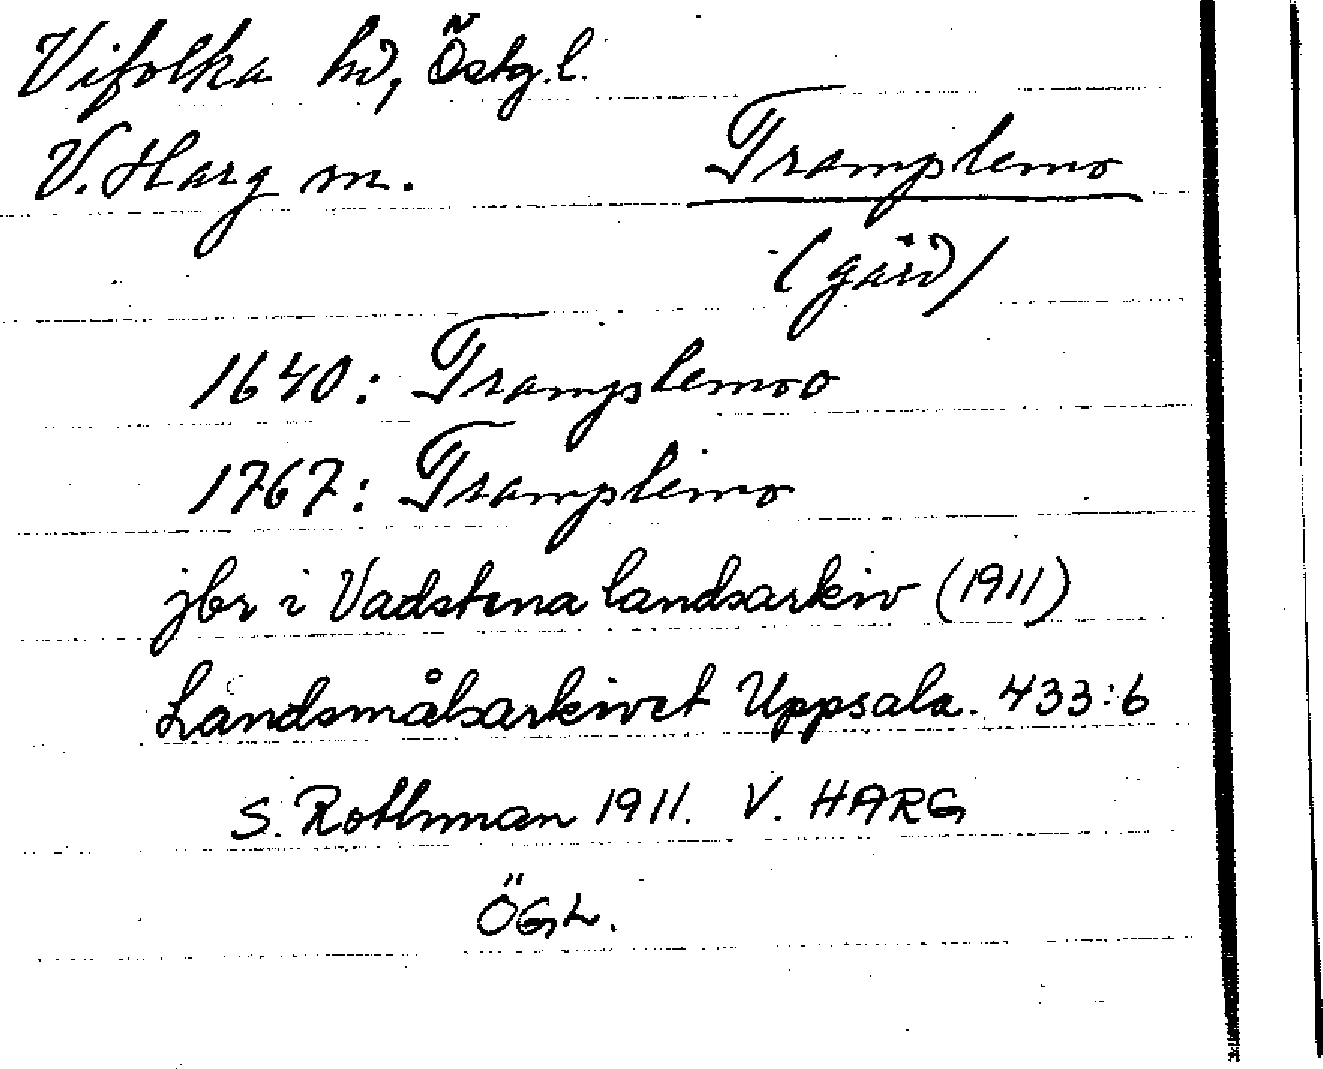 Vifolka hd, Östg.l.
V. Harg sn.
Tramplemo
(gård)
1640: Tramplemoo
1767: Tramplimo
jbr i Vadstena landsarkiv (1911)
Landsmålsarkivet Uppsala. 433:6
S. Rothman 1911. V. HARG
ÖGL.